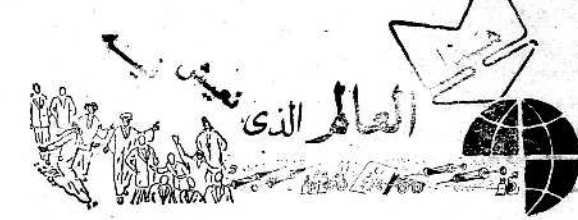 هذا
العالم الذى نعيش فيه